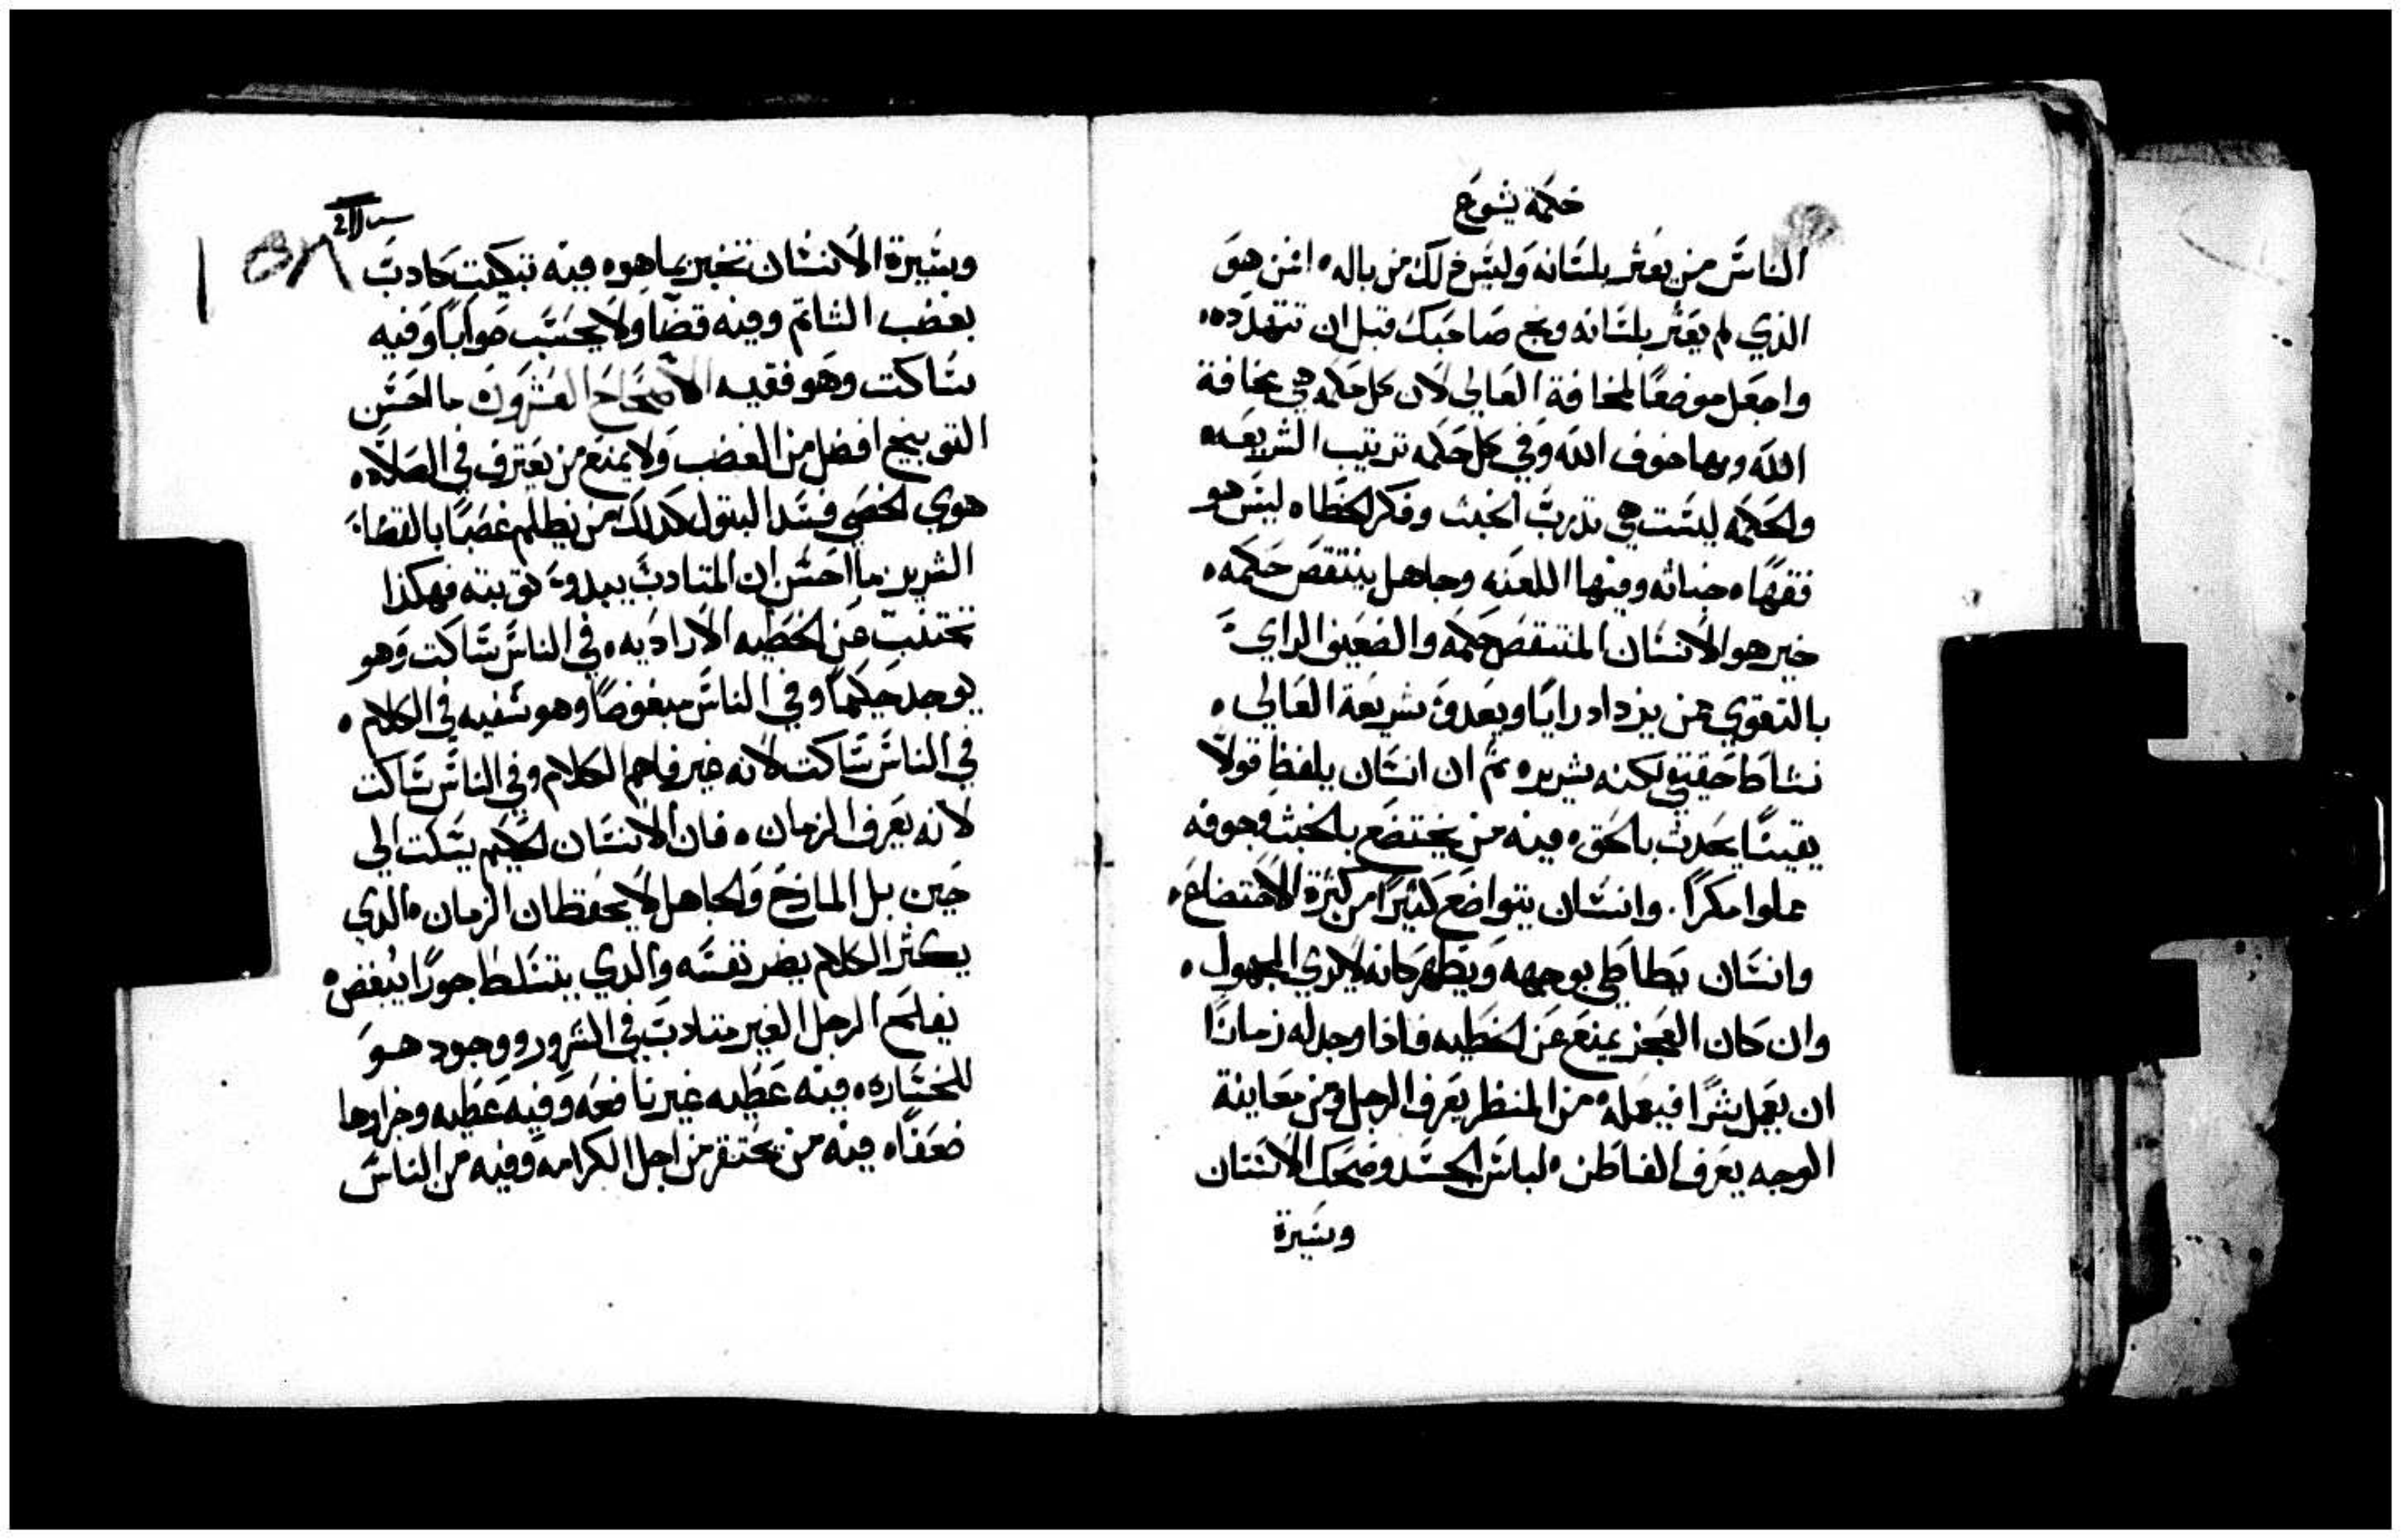 حكمة يشوع
الناس من يعثر بلسانه وليس ذلك من باله، امن هو
الذي لم يعثر بلسانه وبخ صاحبك قبل ان تتهدده،
واجعل موضعًا لمخافة العالي لان كل حكمه هي مخافة
الله وبها خوف الله وفي كل حكمه ترتيب الشريعه،
والحكمه ليست هي تدرب الخبث وفكر الخطاه ليس هو
فقهًا، خباثه وفيها اللعنه وجاهل ينتقص حكمه،
خير هو الانسان المنتقص حكمه والضعيف الراي
بالتقوي من يزداد رايًا ويعدوا شريعة العالي،
نشاط حقيقي لكنه شرير، ثم ان انسان يلفظ قولًا
يقينًا يحدث بالحق، فيه من يختضع بالخبث وجوفه
مملوا مكرًا. وانسان يتواضع كثيرًا من كثرة الاختضاع،
وانسان يطاطي بوجهه ويظهر كانه لا يري المجهول،
وان كان العجز يمنع عن الخطيه فاذا وجد له زمانًا
ان يعمل شرًا فيعمله، من المنظر يعرف الرجل ومن معاينة
الوجه يعرف الفاطن، لباس الجسد وضحك الانسان
وسيرة
وسيرة الانسان تخبر بما هو، فيه تبكيت كادب
بغضب الشاتم وفيه قضا ولا يحسب جوابًا وفيه
ساكت وهو فقيه الاصحاح العشرون ما احسن
التوبيخ افضل من الغضب ولا يمنع من يعترف في الصلاه،
هوي الخصي فسد البتول كدلك من يظلم غصبًا بالقضاء
الشرير ما احسن ان المتادب يبدو توبته فهكذا
تجتنب عن الخطيه الاراديه، في الناس ساكت وهو
يوجد حكيمًا وفي الناس مبغوضًا وهو سفيه في الكلام،
في الناس ساكت لانه غير فاهم الكلام وفي الناس ساكت
لانه يعرف الزمان، فان الانسان الحكيم يسكت الي
حين بل الماذح والجاهل لا يحفظان الزمان، الدي
يكثر الكلام يضر نفسه والدي يتسلط جورًا يبغض،
يفلح الرجل الغير متادب في الشرور ووجود هو
للخساره، فيه عطيه غير نافعه وفيه عطيه وجزاوها
ضعفًا، فيه من يحتقر من اجل الكرامه وفيه من الناس